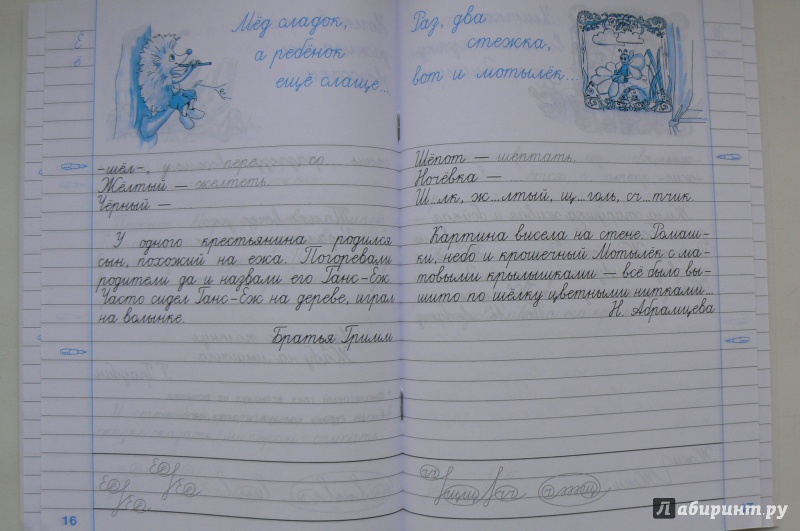 Мёд сладок,
а ребёнок
ещё слаще...
-шёл-, у пере до
Жёлтый — желтеть.
Чёрный —
У одного крестьянина родился
сын, похожий на ежа. Погоревали
родители да и назвали его Ганс-Ёж.
Часто сидел Ганс-Ёж на дереве, играл
на волынке.
Братья Гримм
16
Раз, два
стежка,
вот и мотылёк...
Шёпот — шептать.
Ночёвка —
Ш...лк, ж...лтый, щ...голь, сч...тчик.
Картина висела на стене. Ромаш-
ки, небо и крошечный Мотылёк с ма-
товыми крылышками — всё было вы-
шито по шёлку цветными нитками...
Н. Абрамцева
Лабиринт.ру